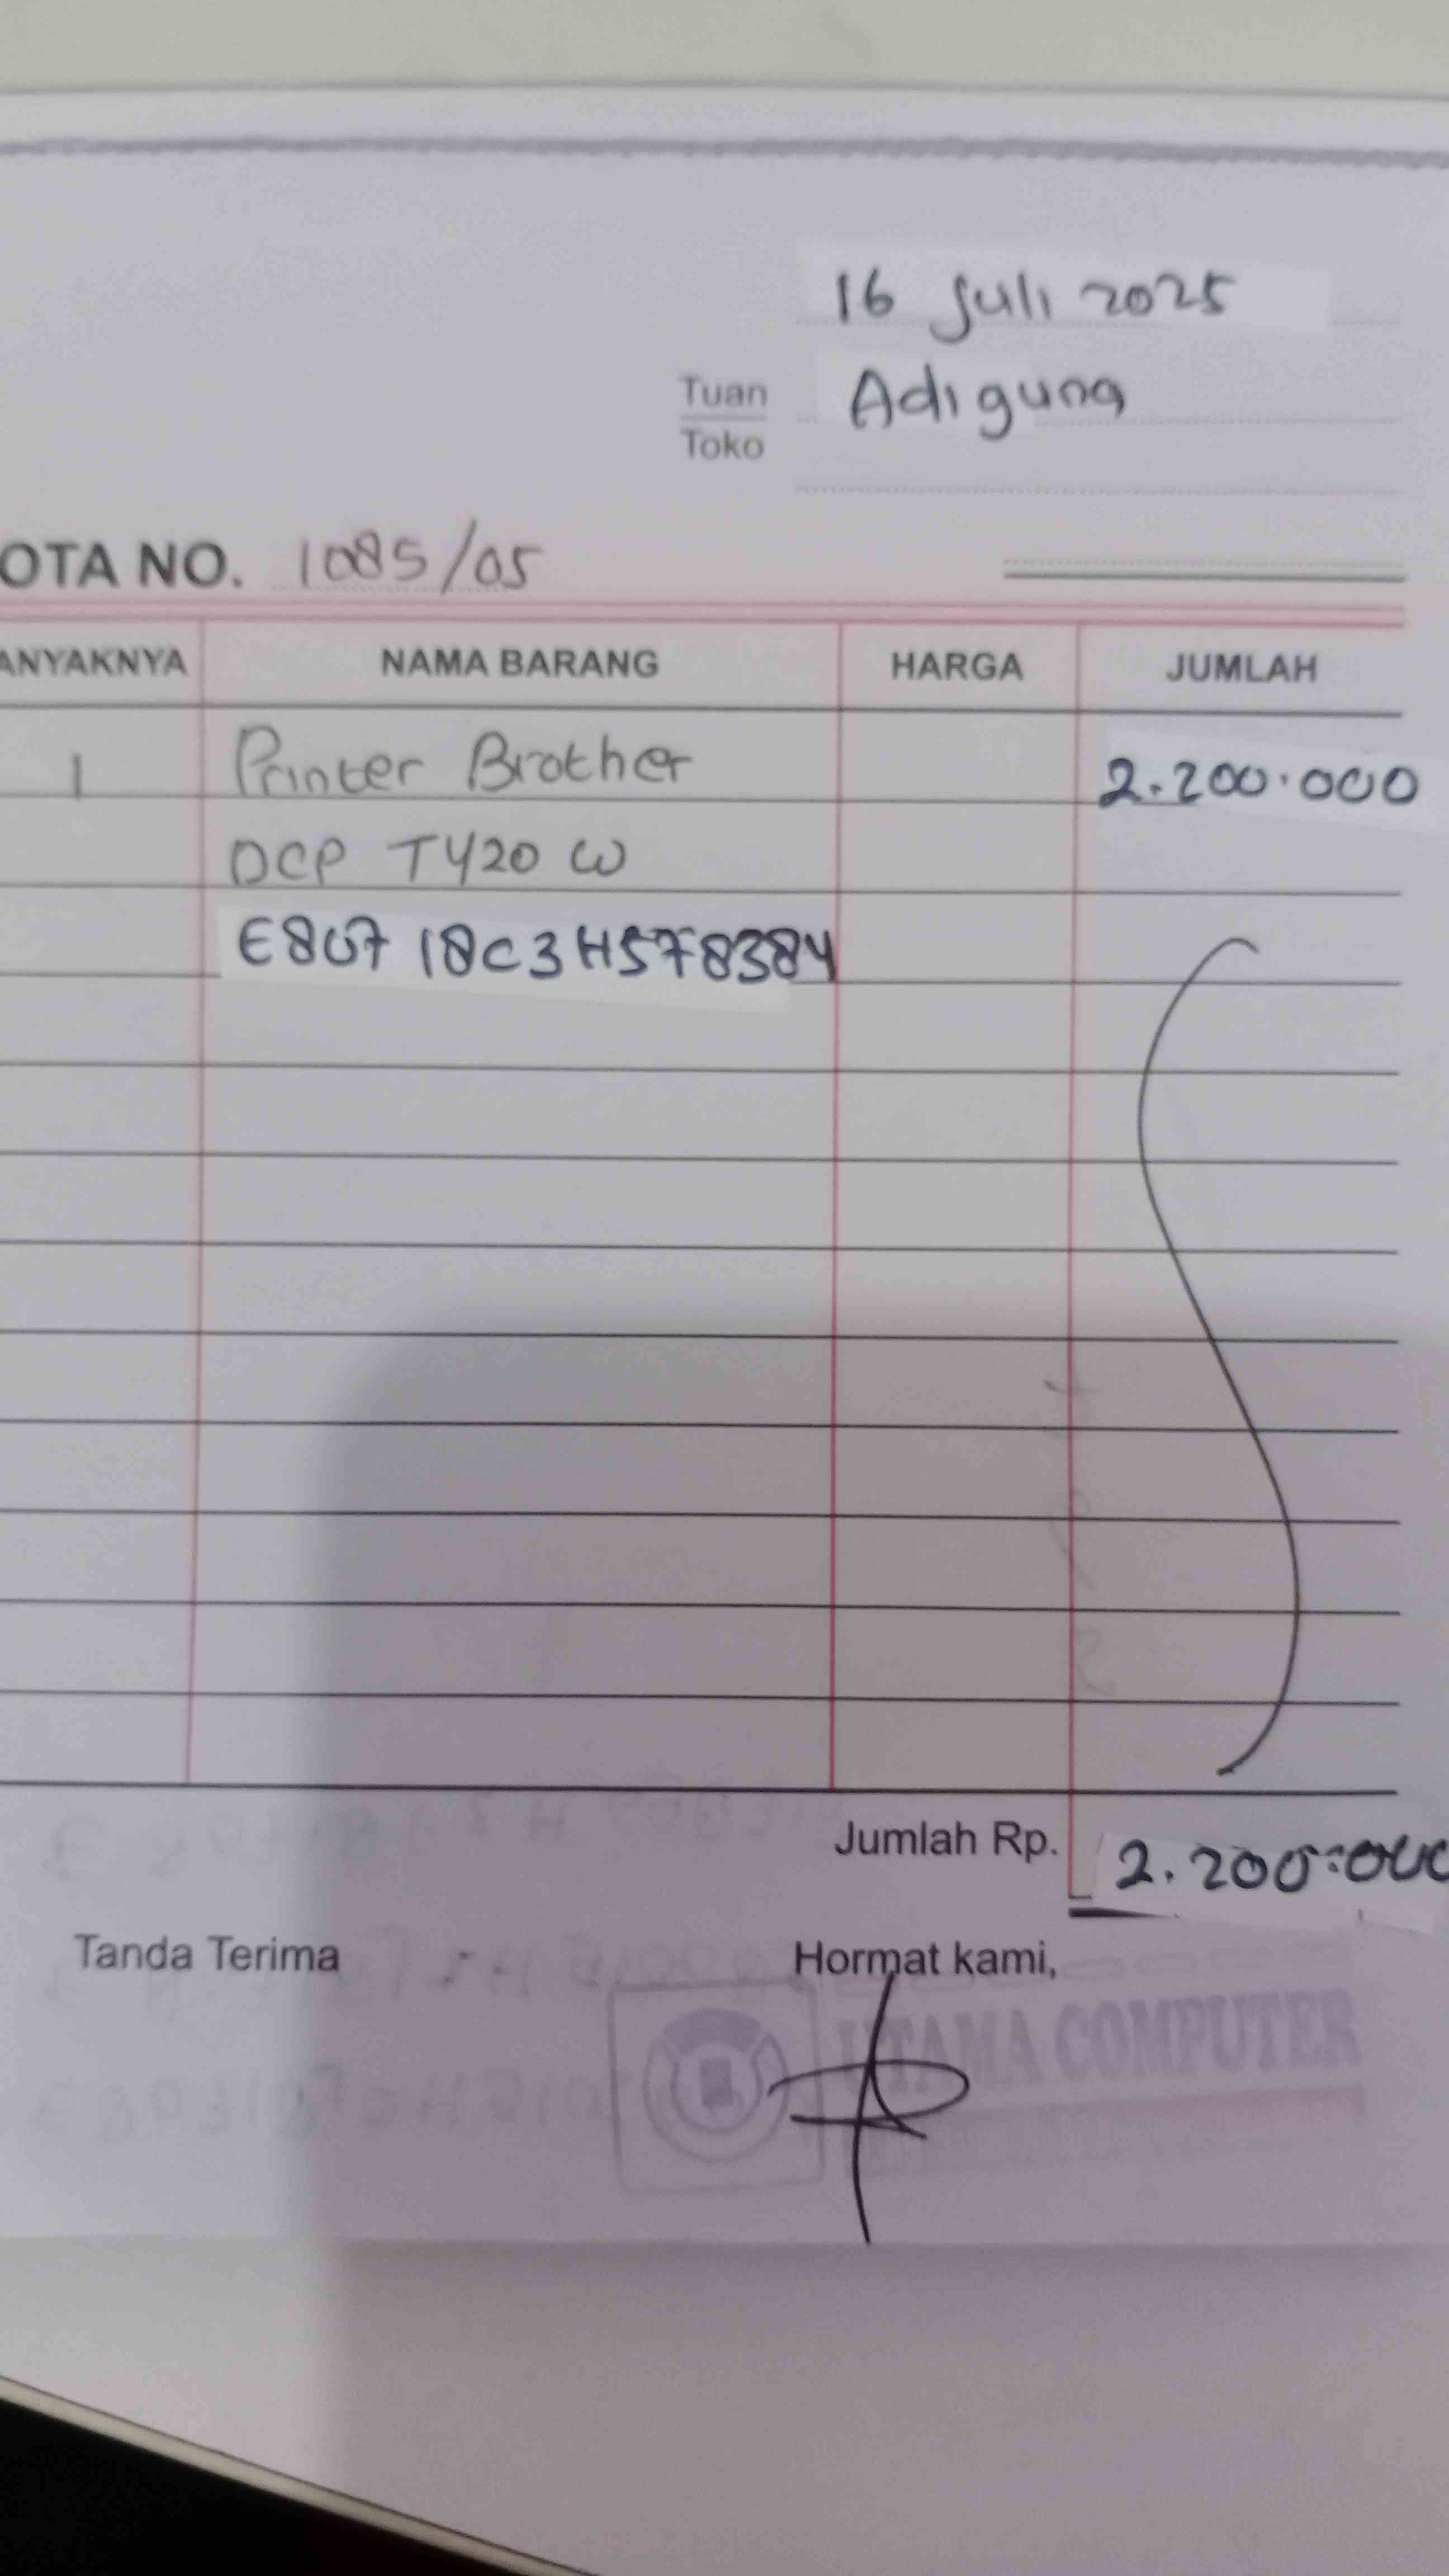 16 Juli 2025
Tuan Adiguna
Toko
OTA NO. 1085/05
ANYAKNYA NAMA BARANG HARGA JUMLAH
1 Printer Brother 2.200.000
DCP T420 W
E80718C3H578384
Jumlah Rp. 2.200.000
Tanda Terima Hormat kami,
UTAMA COMPUTER